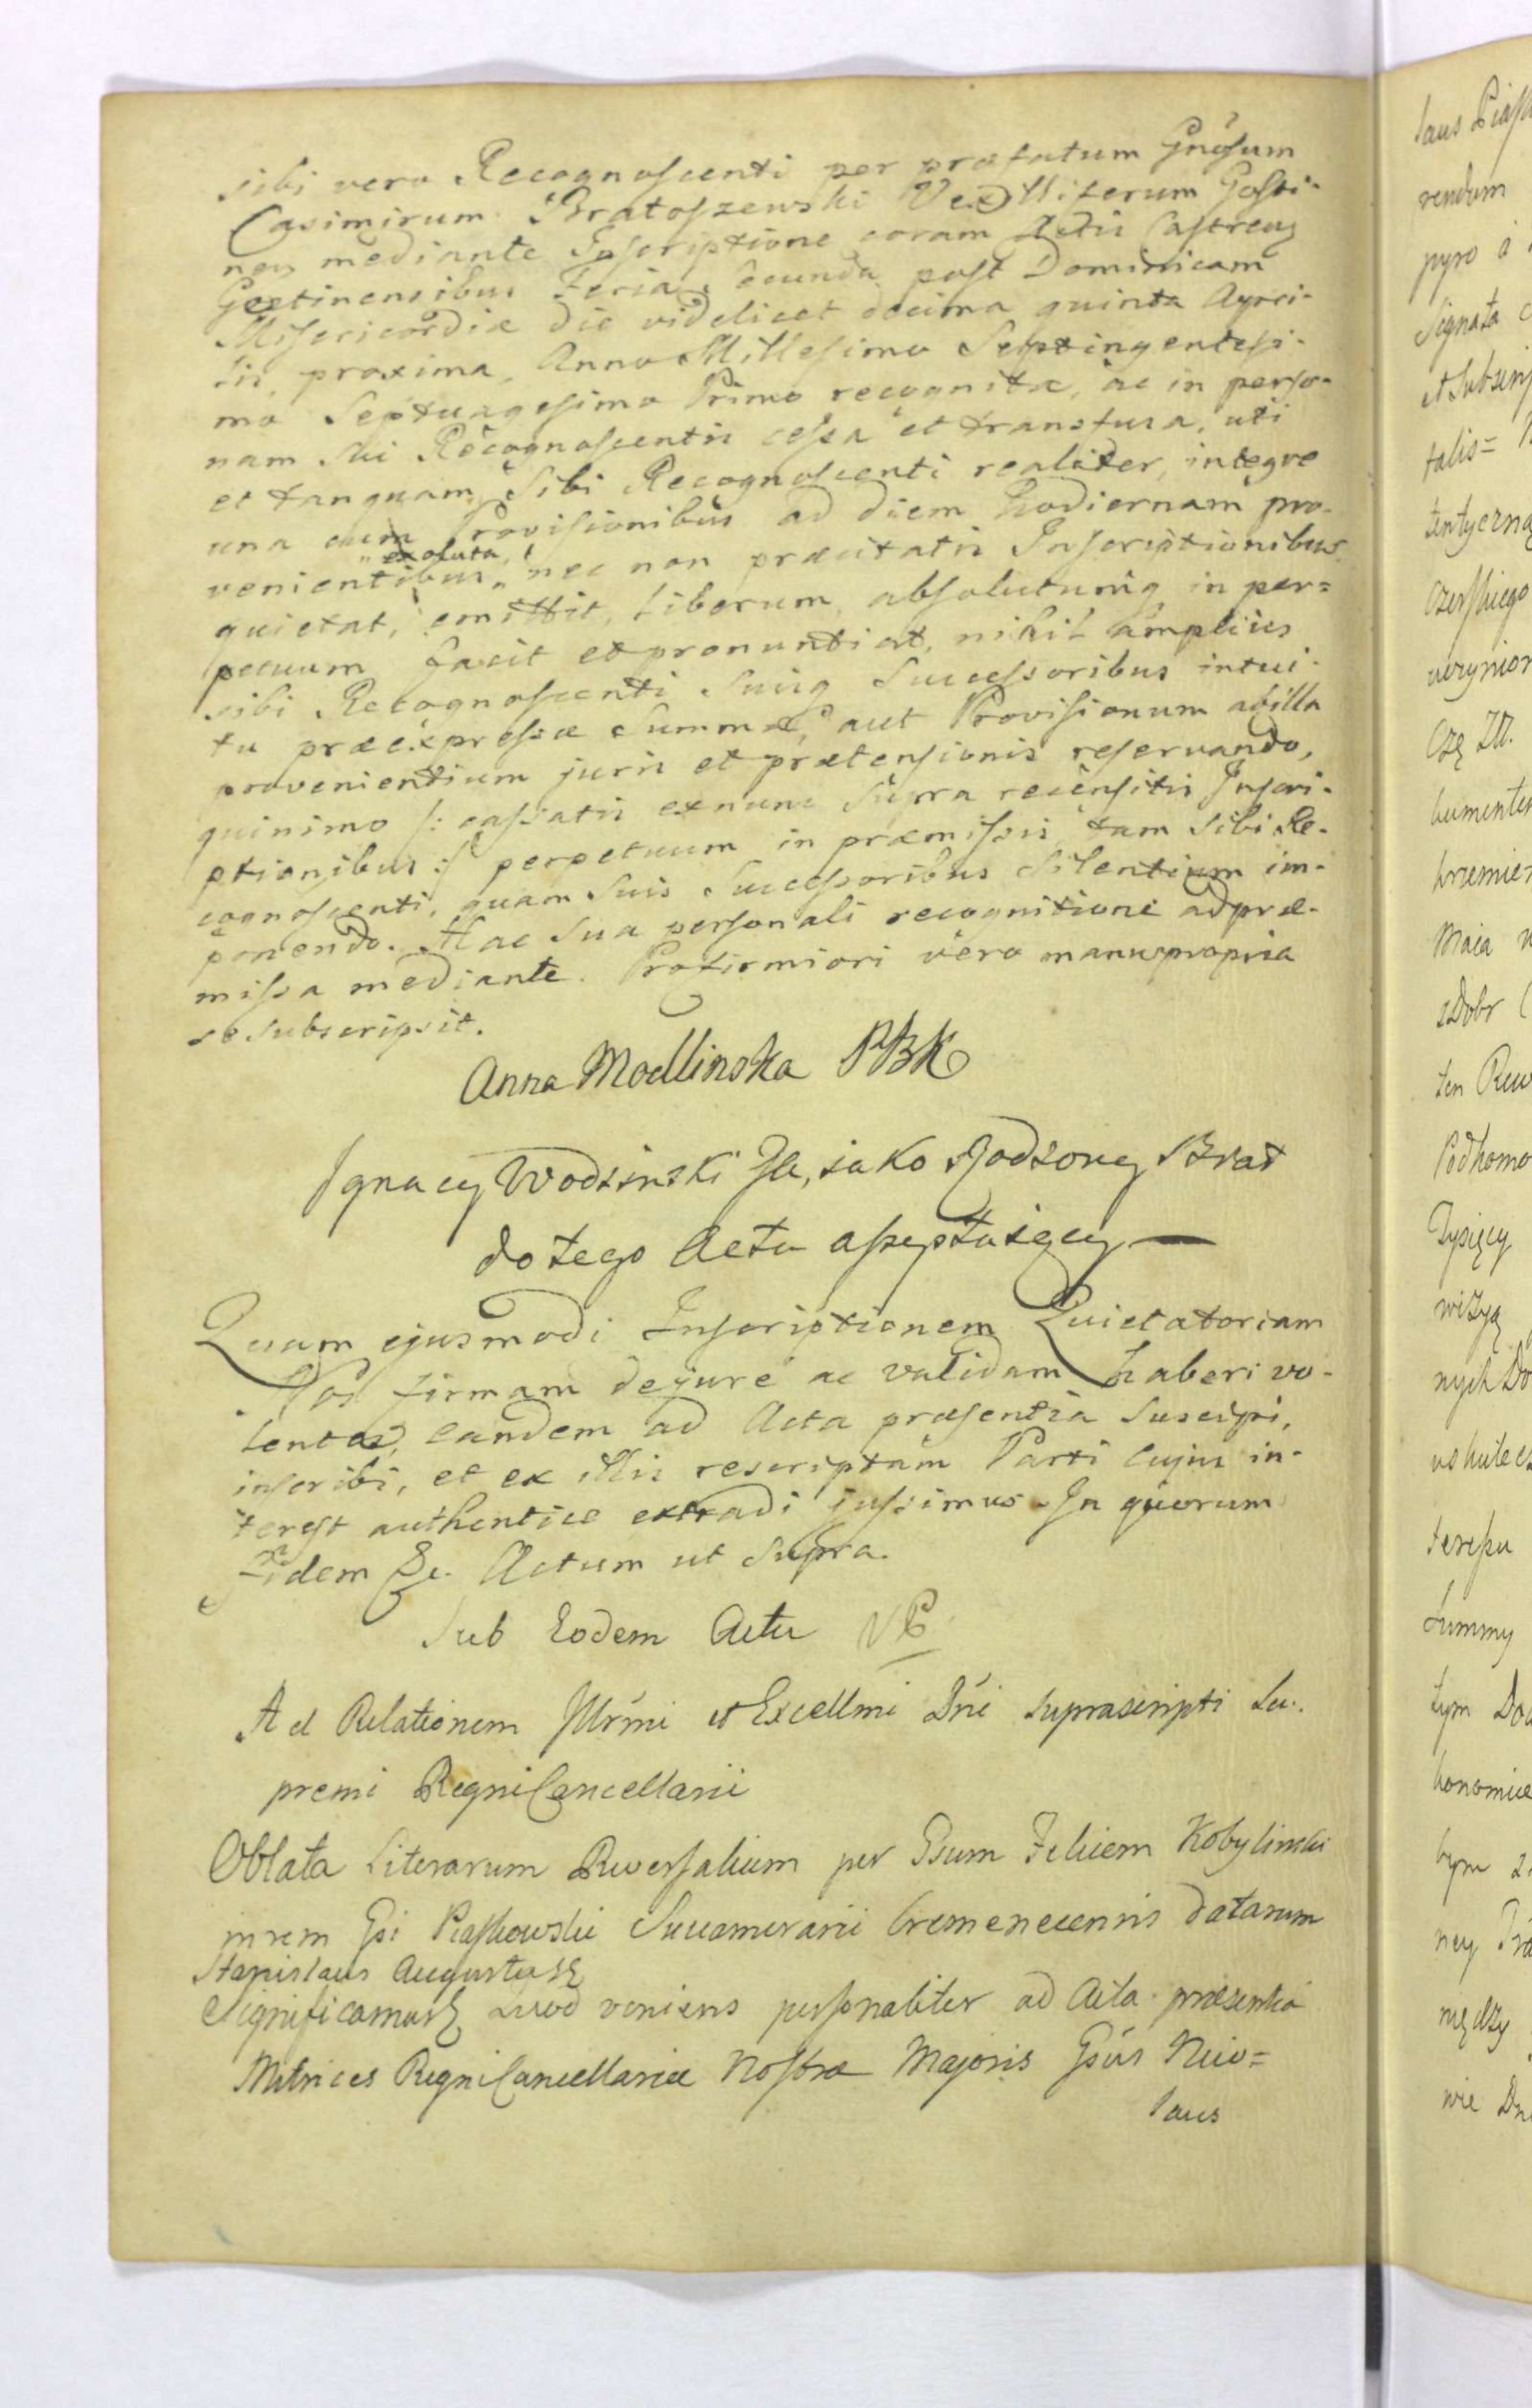 sibi vero Recognoscenti per præfatum Gnosum
Casimirum Bratoszewski Vexilliferum Gosti-
nen mediante Inscriptione coram Actis Castren
Gostinensibus Feria Secunda post Dominicam
Misericordiæ die videlicet decima quinta Apri-
lis, proxima, Anno Millesimo Septingentesi-
mo Septuagesimo Primo recognita, ac in perso-
nam Sui Recognoscentis cessa et transfusa, uti
et tanquam Sibi Recognoscenti realiter, integre
una cum Provisionibus ad diem hodiernam pro-
venientibus exoluta, nec non præcitatis Inscriptionibus
quietat, emittit, liberum, absolutumq in per=
petuum facit et pronuntiat, nihil amplius
sibi Recognoscenti Suisq Successoribus intui-
tu præexpressæ Summæ, aut Provisionum ab illa
provenientium juris et prætensionis reservando,
quinimo /: cassatis exnunc supra recensitis Inscri-
ptionibus :/ perpetuum in præmissis tam Sibi Re-
cognoscenti, quam Suis Successoribus Silentium im-
ponendo. Hac Sua personali recognitione ad præ-
missa mediante. Pro firmiori vero manu propria
se subscripsit.
Anna Modlinska PBK
Ignacy Wodzinski Ja, iako Rodzony Brat
do tego Actu asseptuięcy —
Quam ejusmodi Inscriptionem Quietatoriam
Nos firmam de jure ac validam haberi vo-
lentes, eandem ad Acta præsentia Suscipi,
inscribi, et ex illis rescriptam Parti cujus in-
terest authentice extradi jussimus. In quorum
Fidem &c. Actum ut Supra.
Sub Eodem Actu
Ad Relationem Illrmi et Excellmi Dni suprascripti Su-
premi Regni Cancellarii
Oblata Literarum Reversalium per Gsum Felicem Kobylinski
in rem Gsi Piaskowski Succamerarii Cremenecensis datarum
Stanislaus Augustus &
Significamus & Quod veniens personaliter ad Acta præsentia
Metrices Regni Cancellariæ Nostræ Majoris Gsus Nico=
laus